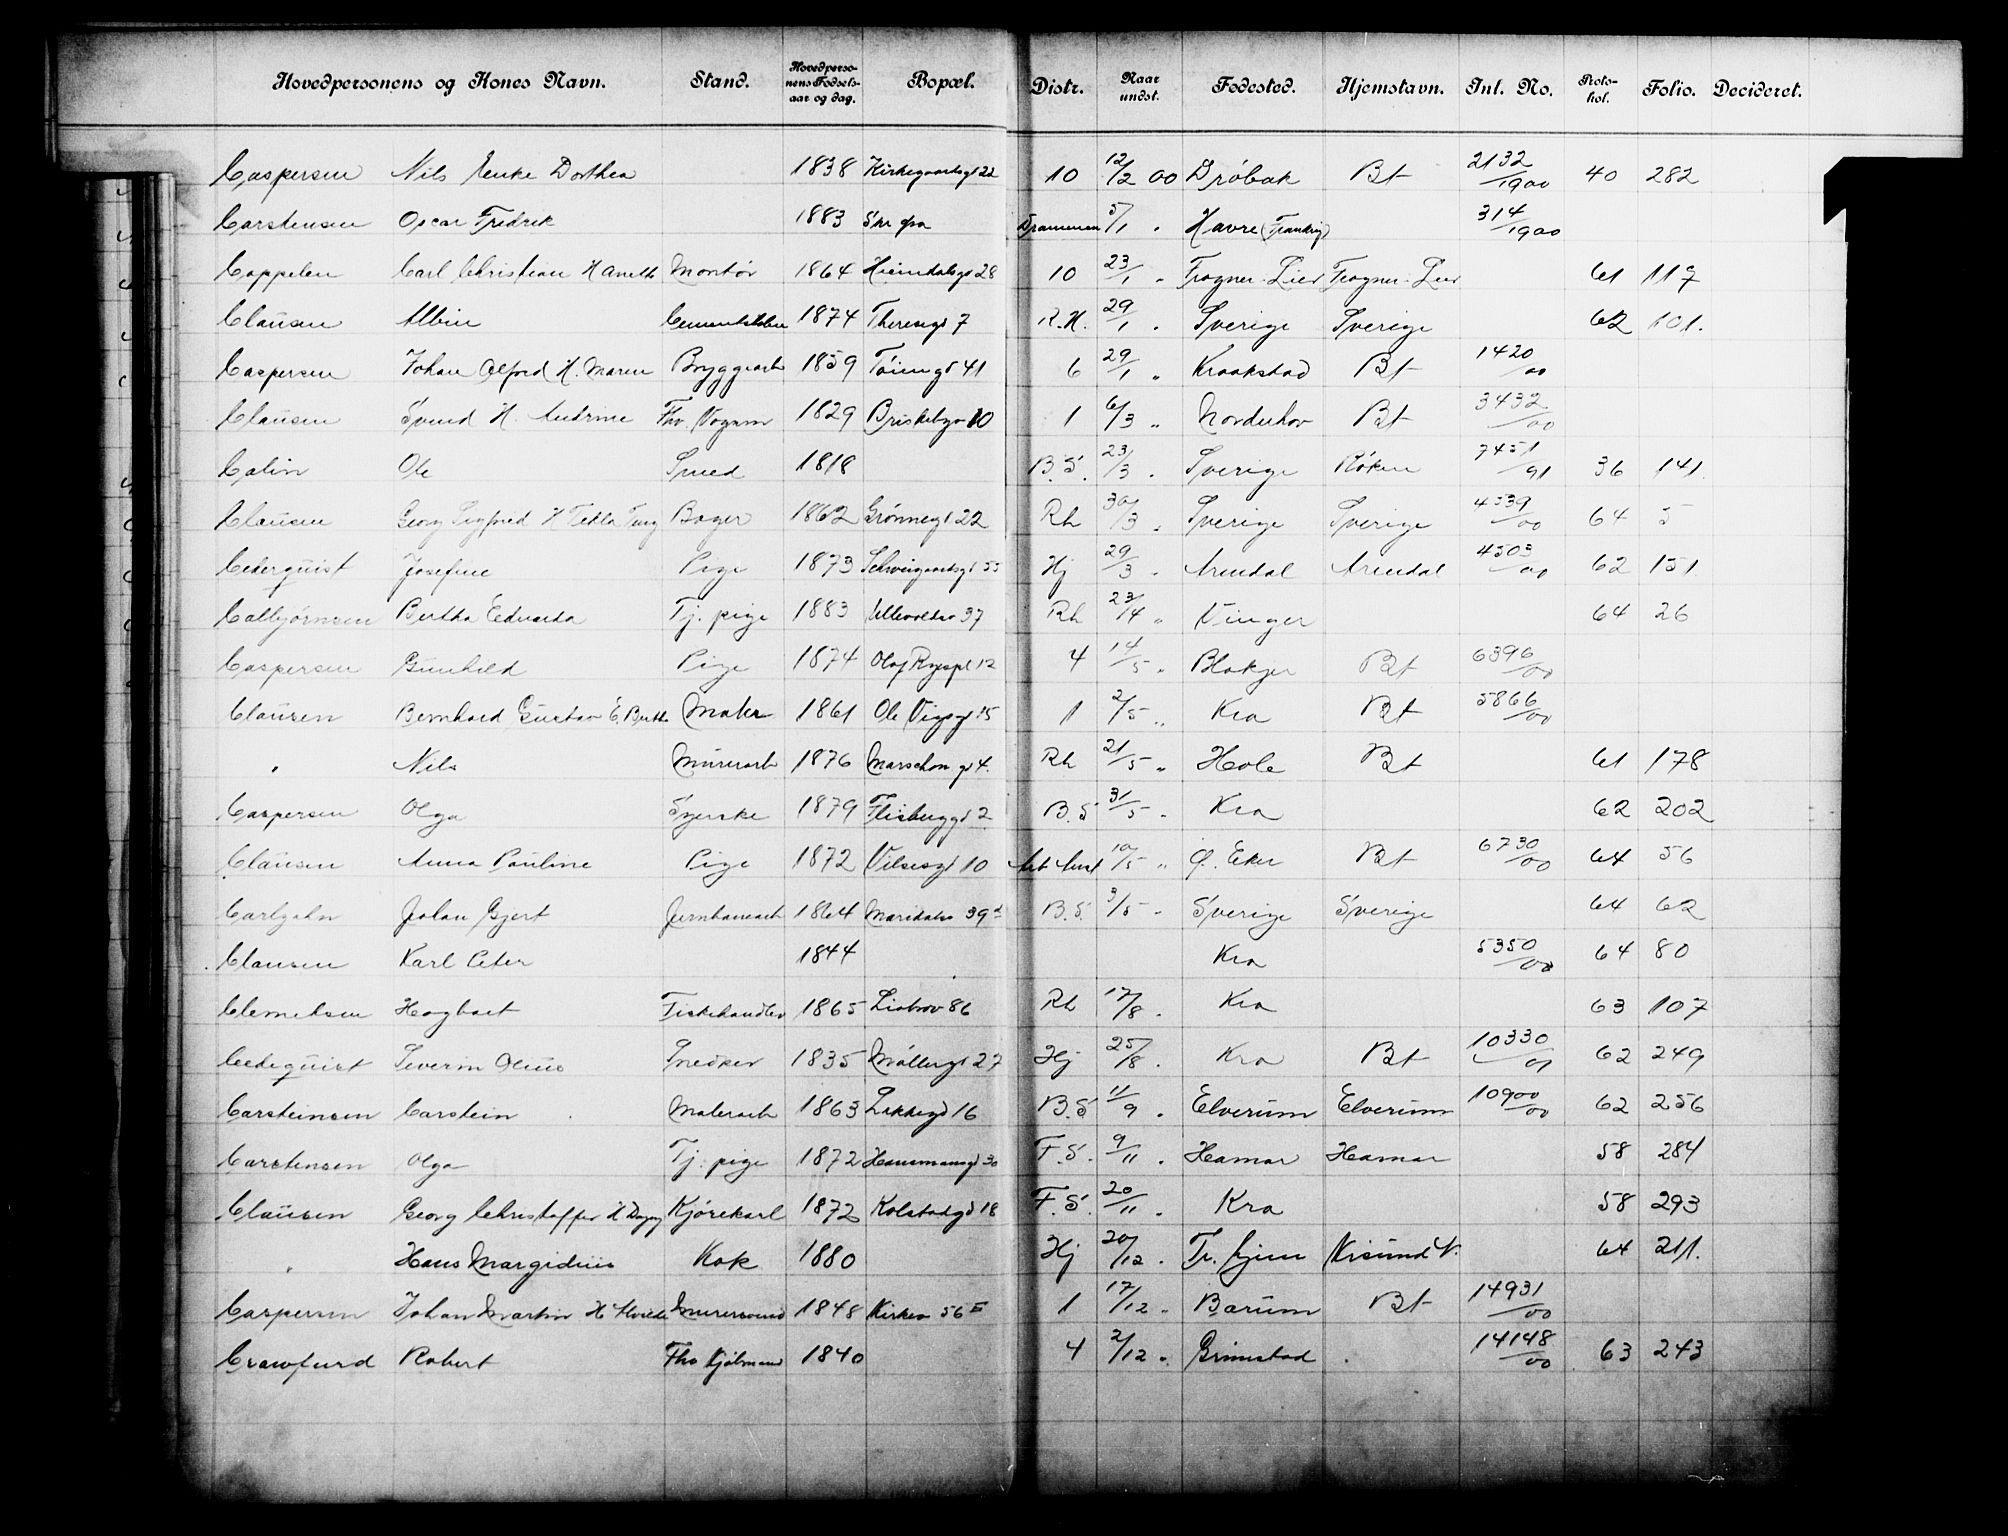 Hovedpersonens og Kones Navn. Stand. Hovedpersonens Fødselsaar og dag. Bopæl. Distr. Naar undst. Fødested. Hjemstavn. Inl. No. Protokol. Folio. Decideret.
Caspersen Nils Enke Dorthea 1838 Kirkegaardsgd 22 10 12/2 00 Drøbak Bt 2132/1900 40 282
Carstensen Oscar Fredrik 1883 Skr fra Drammen 5/1 " Havre (Frankrig) 314/1900
Cappelen Carl Christian H Anette Montør 1864 Heimdalsgd 28 10 23/1 " Frogner. Lier Frogner. Lier 61 117
Clausen Albin 1874 Theresegd 7 R.H. 29/1 " Sverige Sverige 62 101.
Caspersen Johan Alfred H. Maren Bryggearb 1859 Tøiengd 41 6 29/1 " Kraakstad Bt 1420/00
Clausen Svend H. Andrine Fhv. Vognm 1829 Briskebyv 10 1 6/3 " Norderhov Bt 3432/00
Calin Ole Smed 1818 B.S. 23/3 " Sverige Røken 7451/91 36 141.
Clausen Georg Sigfred H Tekla Bager 1862 Grønnegd 22 Rh 30/3 " Sverige Sverige 4539/00 64 5
Cederquist Josefine Pige 1873 Schweigaardsgd 55 Hj 29/3 " Arendal Arendal 4503/00 62 151.
Calbjørnsen Bertha Edvarda Tj. pige 1883 Ullevoldsv 37 Rh 23/4 " Vinger 64 26
Caspersen Gunhild Pige 1874 Olaf Ryespl 12 4 14/5 " Blakjer Bt 6396/00
Clausen Bernhard Gustav E. Berthe Maler 1861 Ole Vigsgd 15 1 2/5 " Kra Bt 5866/00
" Nils Murerarb 1876 gd 4. Rh 21/5 " Hole Bt 61 178
Caspersen Olga Syerske 1879 Flisberggd 2 B.S 31/5 " Kra 62 202
Clausen Anna Pauline Pige 1872 Vilsesgd 10 10/5 " Ø. Eker Bt 6730/00 64 56
Johan Gjert Jernbanearb 1864 Maridalsv 39 B.S. 3/5 " Sverige Sverige 64 62
Clausen Karl Peter 1844 Kra 5350/00 64 80
Clemetsen Hagbart Fiskehandler 1865 86 Rh 17/8 " Kra 63 107
Cedequist Severin Olius Snedker 1835 Møllergd 27 Hj 25/8 " Kra Bt 10330/00 62 249
Carsteinsen Carstein Malerarb 1863 Lakkegd 16 B.S 11/9 " Elverum Elverum 10900/00 62 256
Carstensen Olga Tj. pige 1872 Hausmansgd 30 F.S. 9/11 " Hamar Hamar 58 284
Clausen Georg Christoffer H Dagny Kjørekarl 1872 Kolstadgd 18 F.S. 20/11 " Kra 58 293
" Hans Margidius Kok 1880 Hj 20/12 " Tr. hjem Krisund N. 64 211.
Caspersen Johan Martin H Murersvend 1848 Kirkev 56 E 1 17/12 " Bærum Bt 14931/00
Crawfurd Robert Fhv 1840 4 2/12 " Grimstad 14148/00 63 243